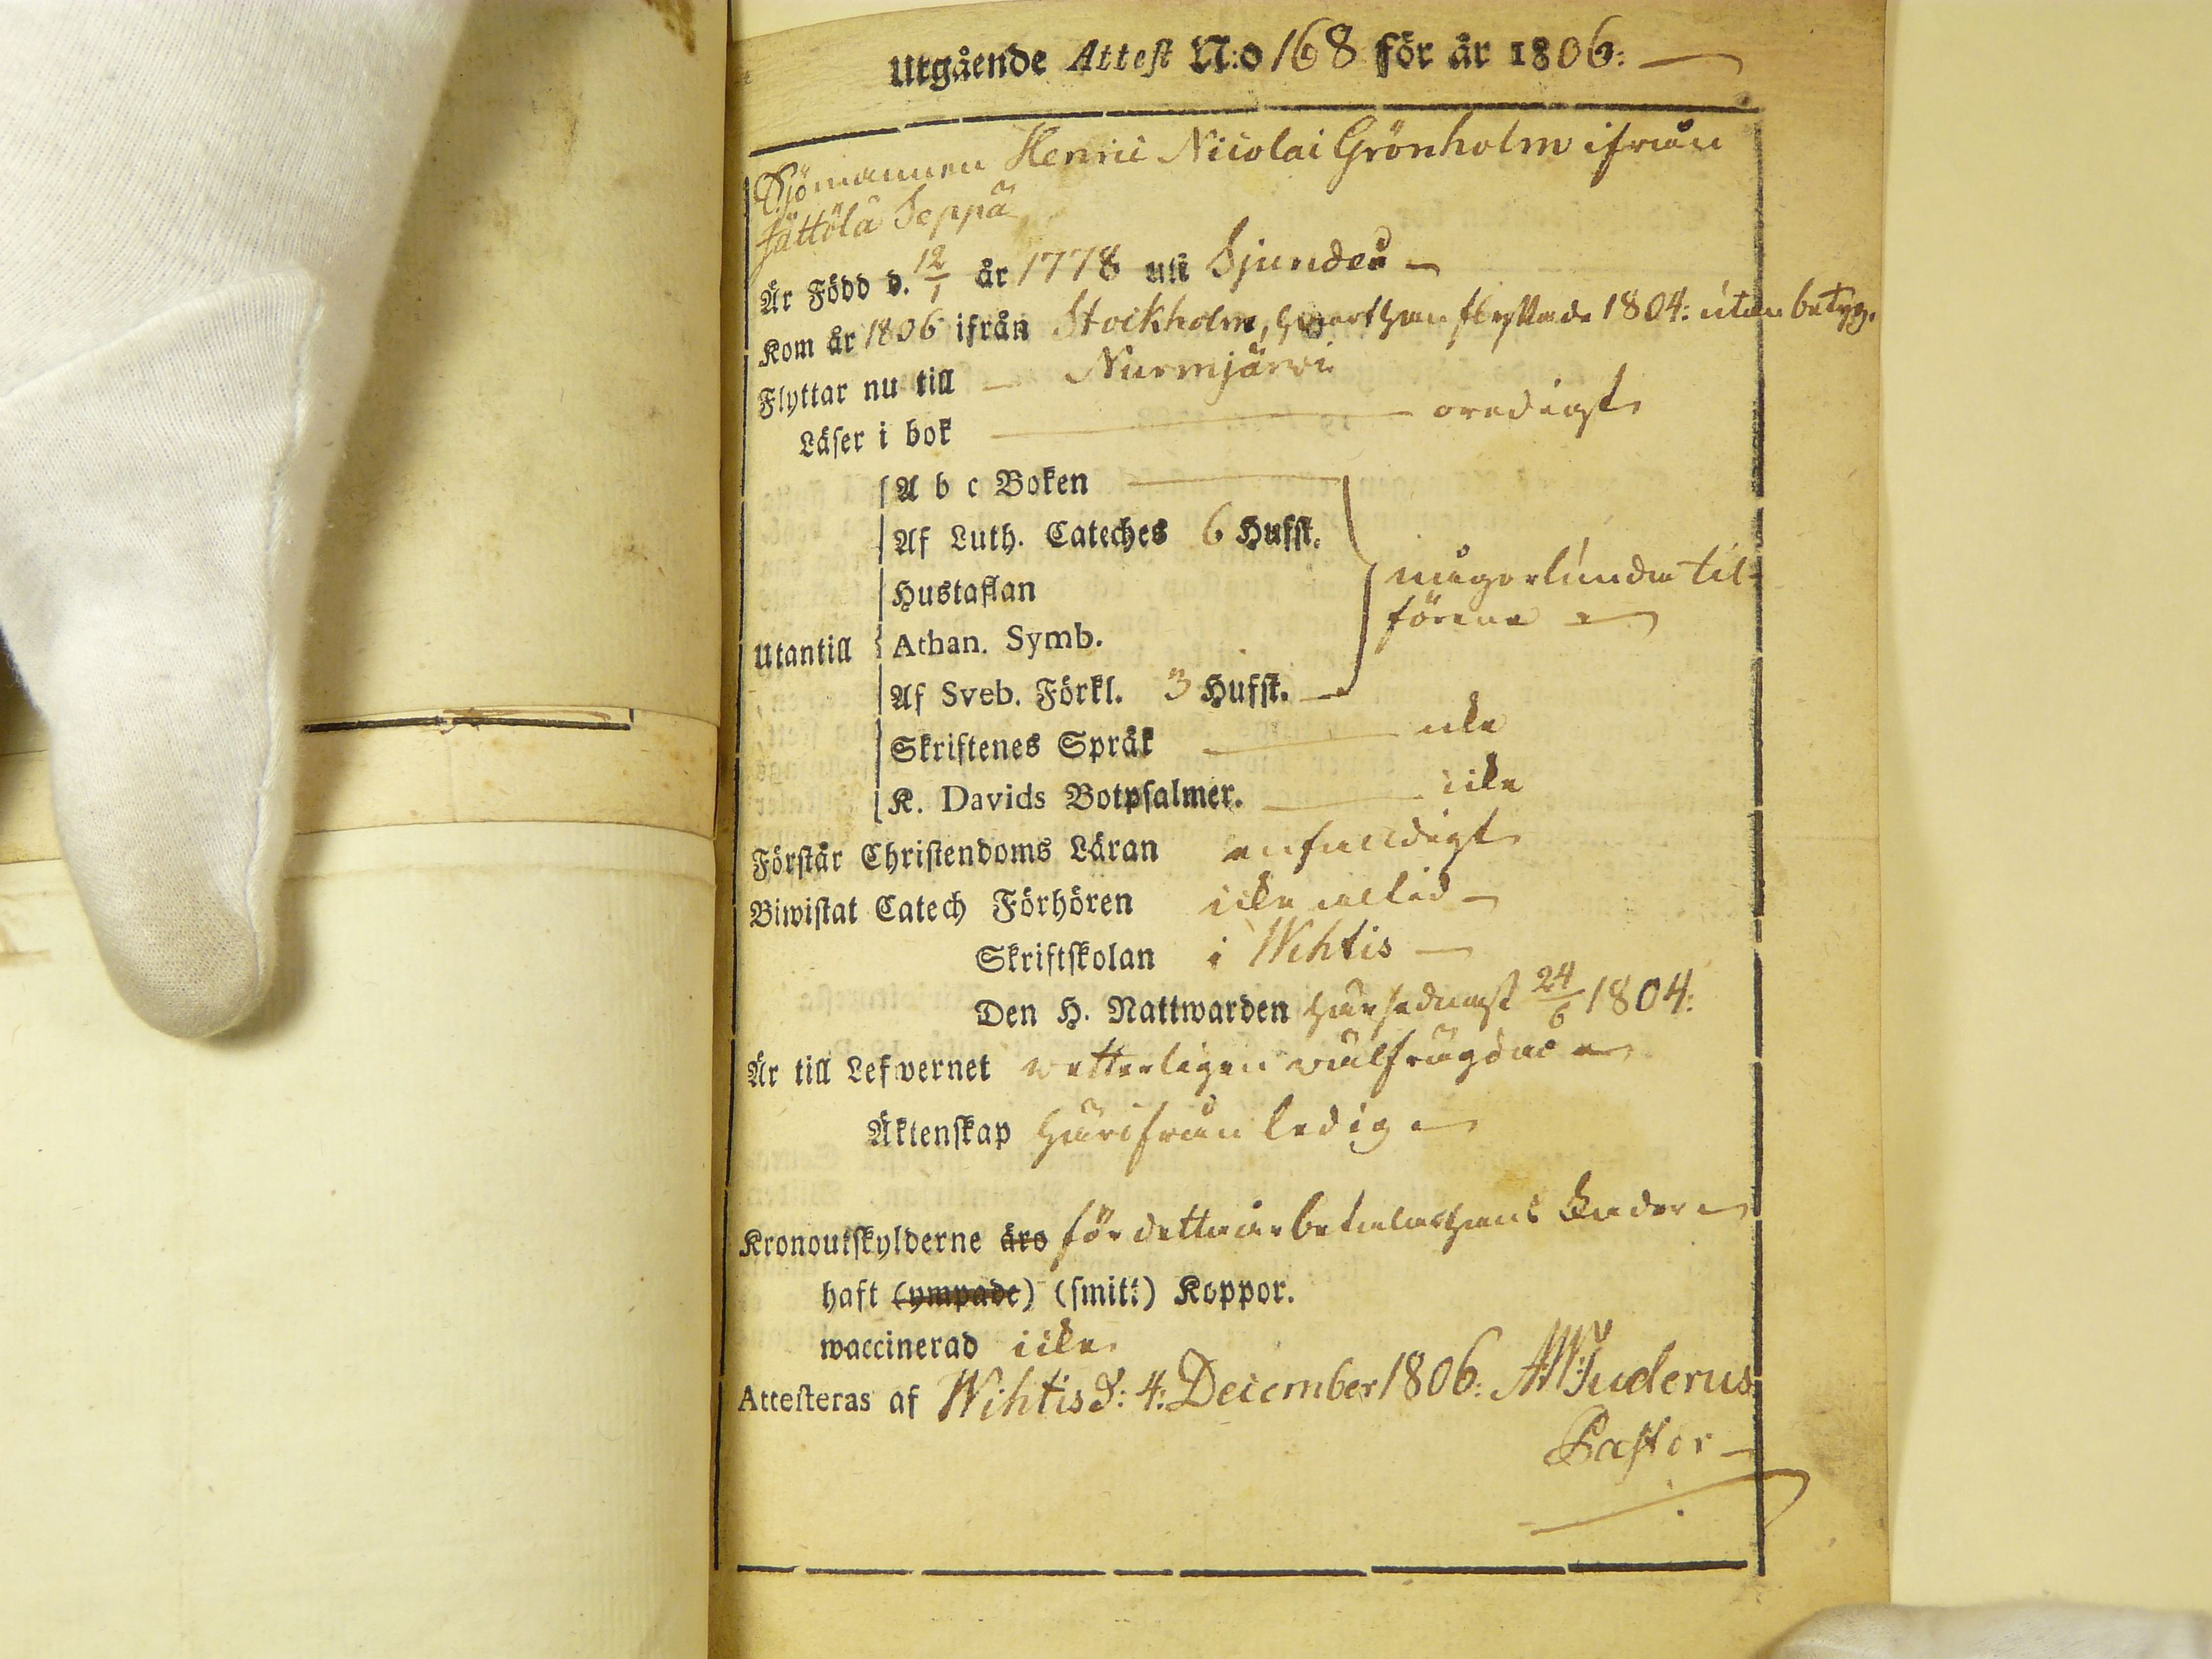 Utgående Attest N:o 168 för år 1806:
Sjömannen Henric Nicolai Grönholm ifrån
Jättölä Seppä
Är Född d. 12/1 år 1778 uti Sjundeå
Kom år 1806 ifrån Stockholm, hwart han flyttade 1804: utan betyg.
Flyttar nu till Nurmjärwi
Läser i bok oredigt
A b c Boken
Af Luth. Cateches 6 Hufst.
Hustaflan
någorlunda til
förene
Utantill Athan. Symb.
Af Sveb. Förkl. 3 Hufst.
Skriftenes Språk icke
K. Davids Botpsalmer. icke
Förstår Christendoms Läran enfaldigt
Biwistat Catech Förhören icke alltid
Skriftskolan i Wihtis
Den H. Nattwarden här sednast 24/6 1804:
Är till Lefwernet wetterligen wälfrägdad
Äktenskap härifrån ledig
Kronoutskylderne äro för detta år betalas hans
haft (ympade) (smitt) Koppor.
waccinerad icke
Attesteras af Wihtis d: 4: December 1806. Tuderus
Pastor